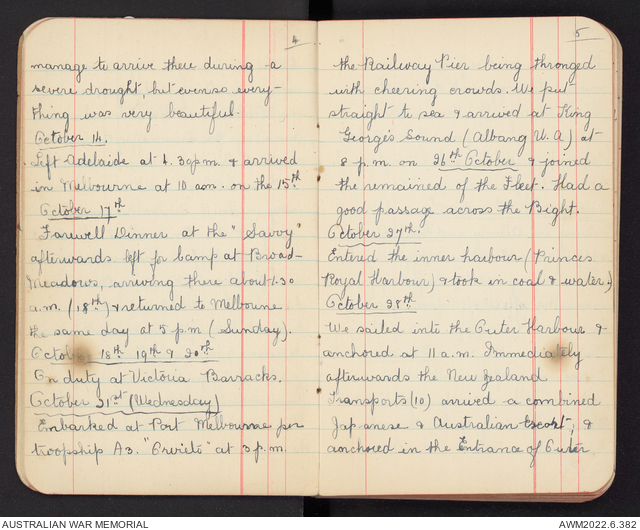 4
manage to arrive there during a
severe drought, but even so every-
thing was very beautiful.
October 14.
Left Adelaide at 4.30 p.m. & arrived
in Melbourne at 10 a.m. on the 15th
October 17th
Farewell Dinner at the "Savoy"
afterwards left for Camp at Broad-
Meadows, arriving there about 1.30
a.m. (18th) & returned to Melbourne
the same day at 5 p.m (Sunday).
October 18th 19th & 20th
On duty at Victoria Barracks.
October 21st (Wednesday)
Embarked at Port Melbourne per
troopship A3. "Orvieto" at 3 p.m.
5
the Railway Pier being thronged
with cheering crowds. We put
straight to sea & arrived at King
George's Sound (Albany W.A) at
8 p.m. on 26th October & joined
the remained of the Fleet. Had a
good passage across the Bight.
October 27th.
Entered the inner harbour (Princes
Royal Harbour) & took in coal & water.
October 28th
We sailed into the Outer Harbour &
anchored at 11 a.m. Immediately
afterwards the New Zealand
Transports (10) arrived - a combined
Japanese & Australian Escort, &
anchored in the Entrance of Outer
AUSTRALIAN WAR MEMORIAL
AWM2022.6.382